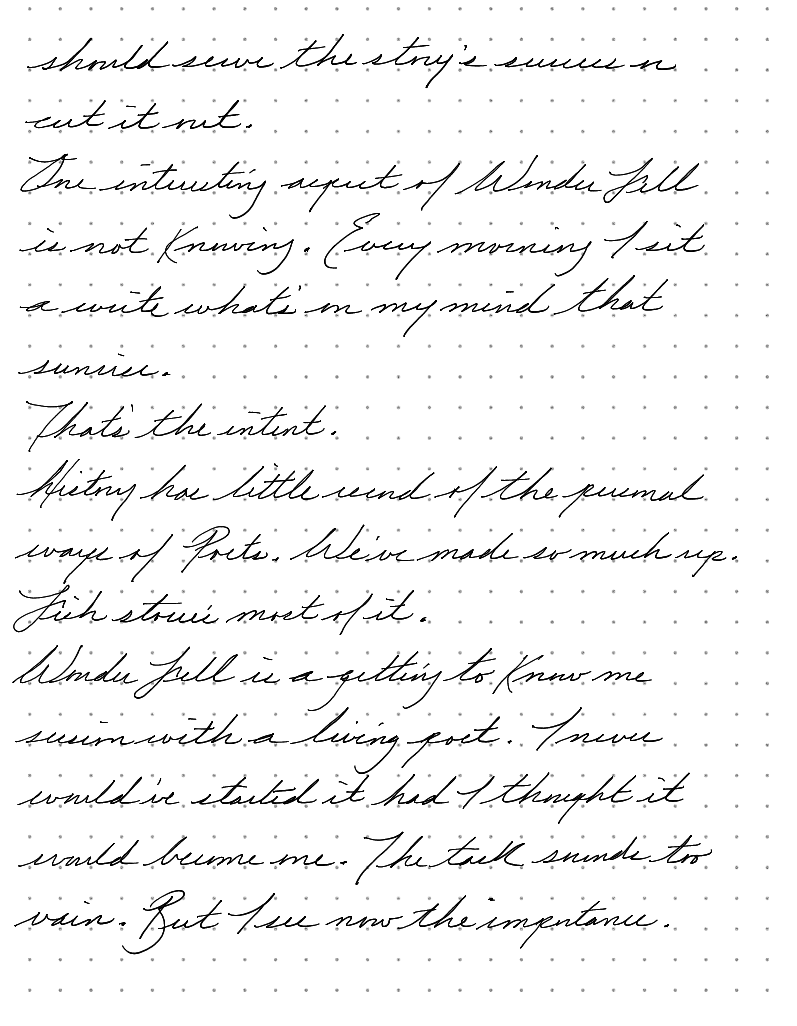 should serve the story's success or
cut it out.
One interesting aspect of Wonder Fell
is not Knowing. Every morning I sit
a write what's on my mind that
sunrise.
That's the intent.
History has little record of the personal
ways of Poets. We've made so much up.
Fish stories most of it.
Wonder Fell is a getting to Know me
session with a living poet. I never
would've started it had I thought it
would become me. The task sounds too
vain. But I see now the importance.